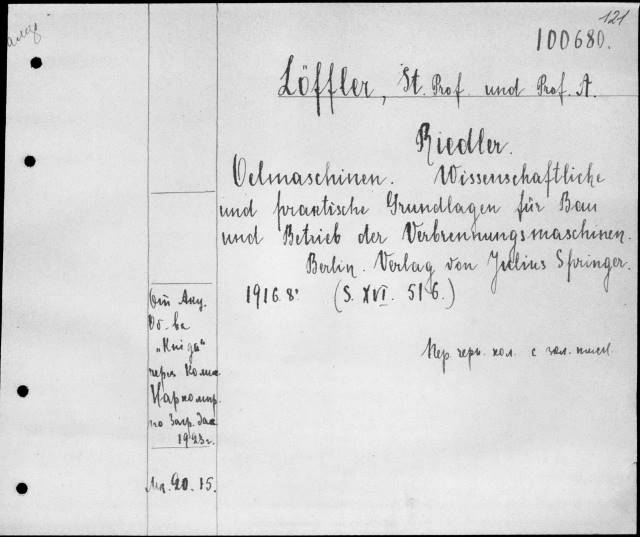 121
100680.
Löffler, St. Prof. und Prof. A.
Riedler.
Oelmaschinen. Wissenschaftliche
und praktische Grundlagen für Bau
und Betrieb der Verbrennungsmaschinen.
Berlin. Verlag von Julius Springer.
1916. 8° (S. XVI. 516.)
Пер. черн. кол. с зол. тисн.
От Акц.
Об-ва
„Книга"
через Ком.
Наркомпр.
по Загр. Зак.
1923 г.
20. 15.